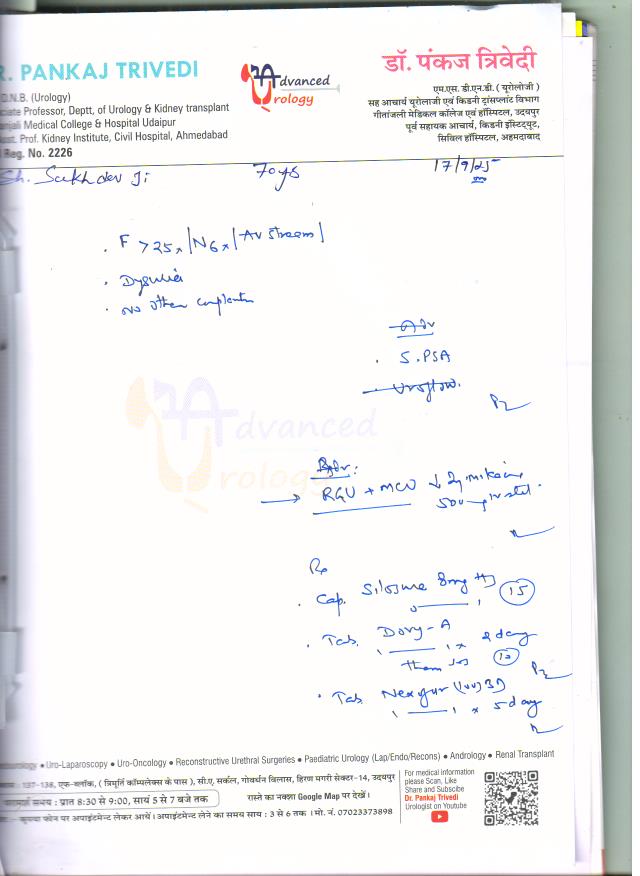 R. PANKAJ TRIVEDI
D.N.B. (Urology)
ciate Professor, Deptt, of Urology & Kidney transplant
anjali Medical College & Hospital Udaipur
Asst. Prof. Kidney Institute, Civil Hospital, Ahmedabad
Reg. No. 2226
Advanced
Urology
डॉ. पंकज त्रिवेदी
एम.एस. डी.एन.बी. ( यूरोलोजी )
सह आचार्य यूरोलाजी एवं किडनी ट्रांसप्लांट विभाग
गीतांजली मेडिकल कॉलेज एवं हॉस्पिटल, उदयपुर
पूर्व सहायक आचार्य, किडनी इंस्टिट्यूट,
सिविल हॉस्पिटल, अहमदाबाद
Sh. Sukhdev Ji 70 yrs 17/9/25
F > 25x | N6x | AV stream |
Dysuria
No other
Adv
S.PSA
Uroflow.
Advanced
Urology
Adv:
RGU + MCU ↓
Rx
Cap. 8mg (15)
Tab. Dovy-A
1 ——— 1 x day
(10)
Tab.
1 ——— 1 x 5 day
ourology ● Uro-Laparoscopy ● Uro-Oncology ● Reconstructive Urethral Surgeries ● Paediatric Urology (Lap/Endo/Recons) ● Andrology ● Renal Transplant
137-138, एफ-ब्लॉक, ( त्रिमूर्ति कॉम्पलेक्स के पास ), सी.ए. सर्कल, गोवर्धन विलास, हिरण मगरी सेक्टर-14, उदयपुर
परामर्श समय : प्रात 8:30 से 9:00, सायं 5 से 7 बजे तक
रास्ते का नक्शा Google Map पर देखें।
कृपया फोन पर अपाइंटमेन्ट लेकर आयें। अपाइंटमेन्ट लेने का समय साय : 3 से 6 तक । मो. नं. 07023373898
For medical information
please Scan, Like
Share and Subscibe
Dr. Pankaj Trivedi
Urologist on Youtube